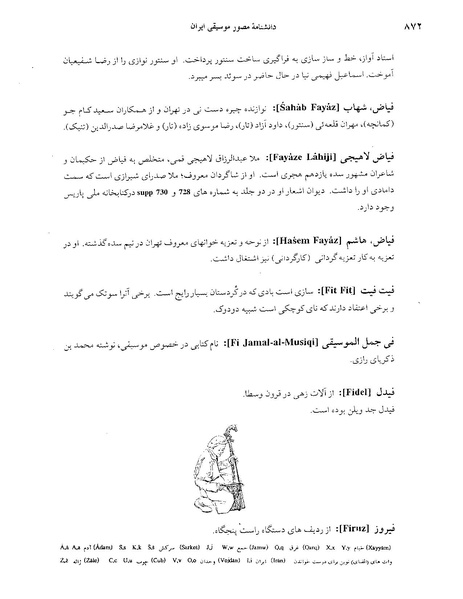 ۸۷۲
دانشنامهٔ مصور موسیقی ایران
استاد آواز، خط و ساز سازی به فراگیری ساخت سنتور پرداخت. او سنتور نوازی را از رضا شفیعیان
آموخت. اسماعیل فهیمی نیا در حال حاضر در سوئد بسر میبرد.
فیاض، شهاب [Šahâb Fayâz]: نوازنده چیره دست نی در تهران و از همکاران سعید کام جو
(کمانچه)، مهران قلعه‌ئی (سنتور)، داود آزاد (تار)، رضا موسوی زاده (تار) و غلامرضا صدرالدین (تنبک).
فیاض لاهیجی [Fayâze Lâhiji]: ملا عبدالرزاق لاهیجی قمی، متخلص به فیاض از حکیمان و
شاعران مشهور سده یازدهم هجری است. او از شاگردان معروف؛ ملا صدرای شیرازی است که سمت
دامادی او را داشت. دیوان اشعار او در دو جلد به شماره های 728 و supp 730 درکتابخانه ملی پاریس
وجود دارد.
فیاض، هاشم [Hašem Fayâz]: از نوحه و تعزیه خوانهای معروف تهران در نیم سده گذشته. او در
تعزیه به کار تعزیه گردانی (کارگردانی) نیز اشتغال داشت.
فیت فیت [Fit Fit]: سازی است بادی که در کُردستان بسیار رایج است. برخی آنرا سوتک می گویند
و برخی اعتقاد دارند که نای کوچکی است شبیه دودوک.
فی جمل الموسیقی [Fi Jamal-al-Musiqi]: نام کتابی در خصوص موسیقی، نوشته محمد بن
ذکریای رازی.
فیدل [Fidel]: از آلات زهی در قرون وسطا.
فیدل جد ویلن بوده است.
فیروز [Firuz]: از ردیف های دستگاه راست پنجگاه.
A,â A,a آدم (Âdam) S,s K,k Š,š سرکش (Sarkeš) J,j W,w جمع (Jamw) Q,q غرق (Qarq) X,x Y,y خیام (Xayyâm)
Z,ž ژاله (Žâle) C,c U,u چوب (Cub) V,v O,o وجدان (Vojdân) I,i ایران (Irân) وات های (الفبای) نوین برای درست خواندن